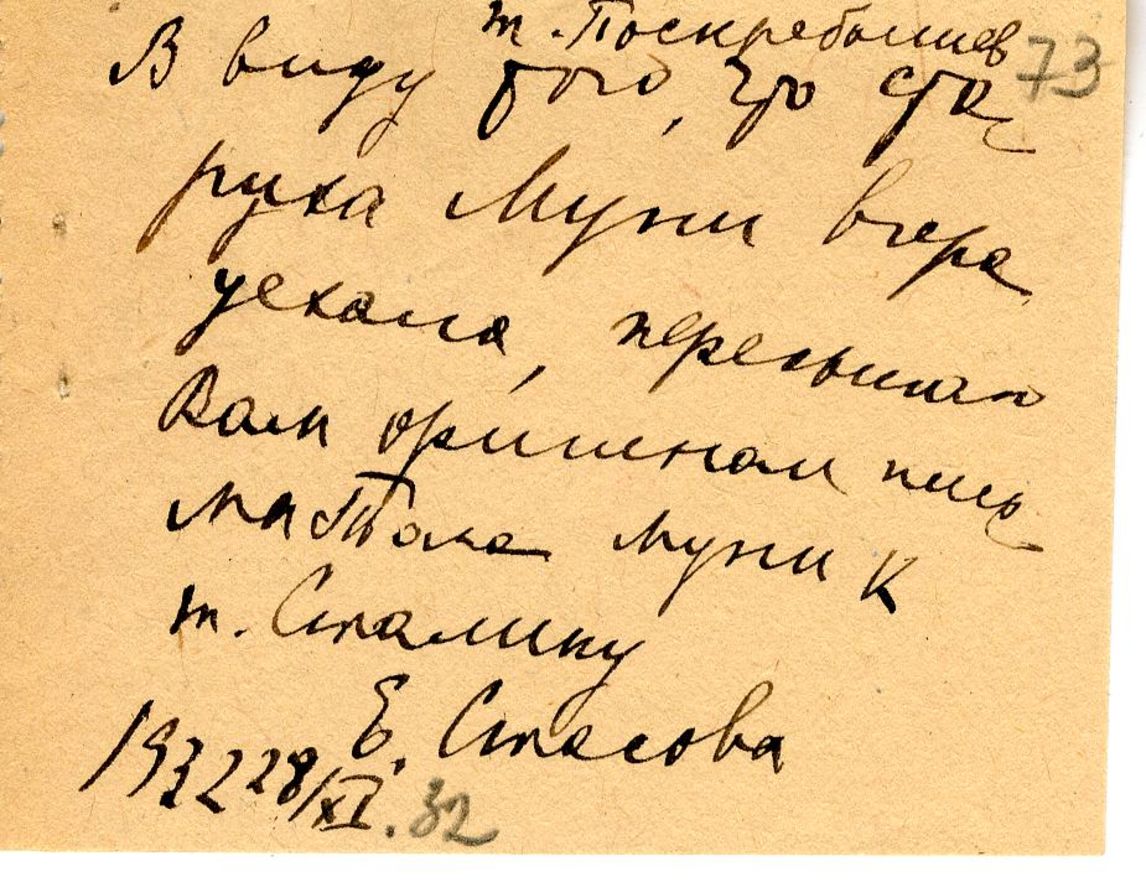 т. Поскребышев 73
В виду того, что ста-
руха Муни вчера
уехала, пересылаю
Вам оригинал пись-
ма Тома Муни к
т. Сталину
Е. Стасова
1932 28/XI. 32